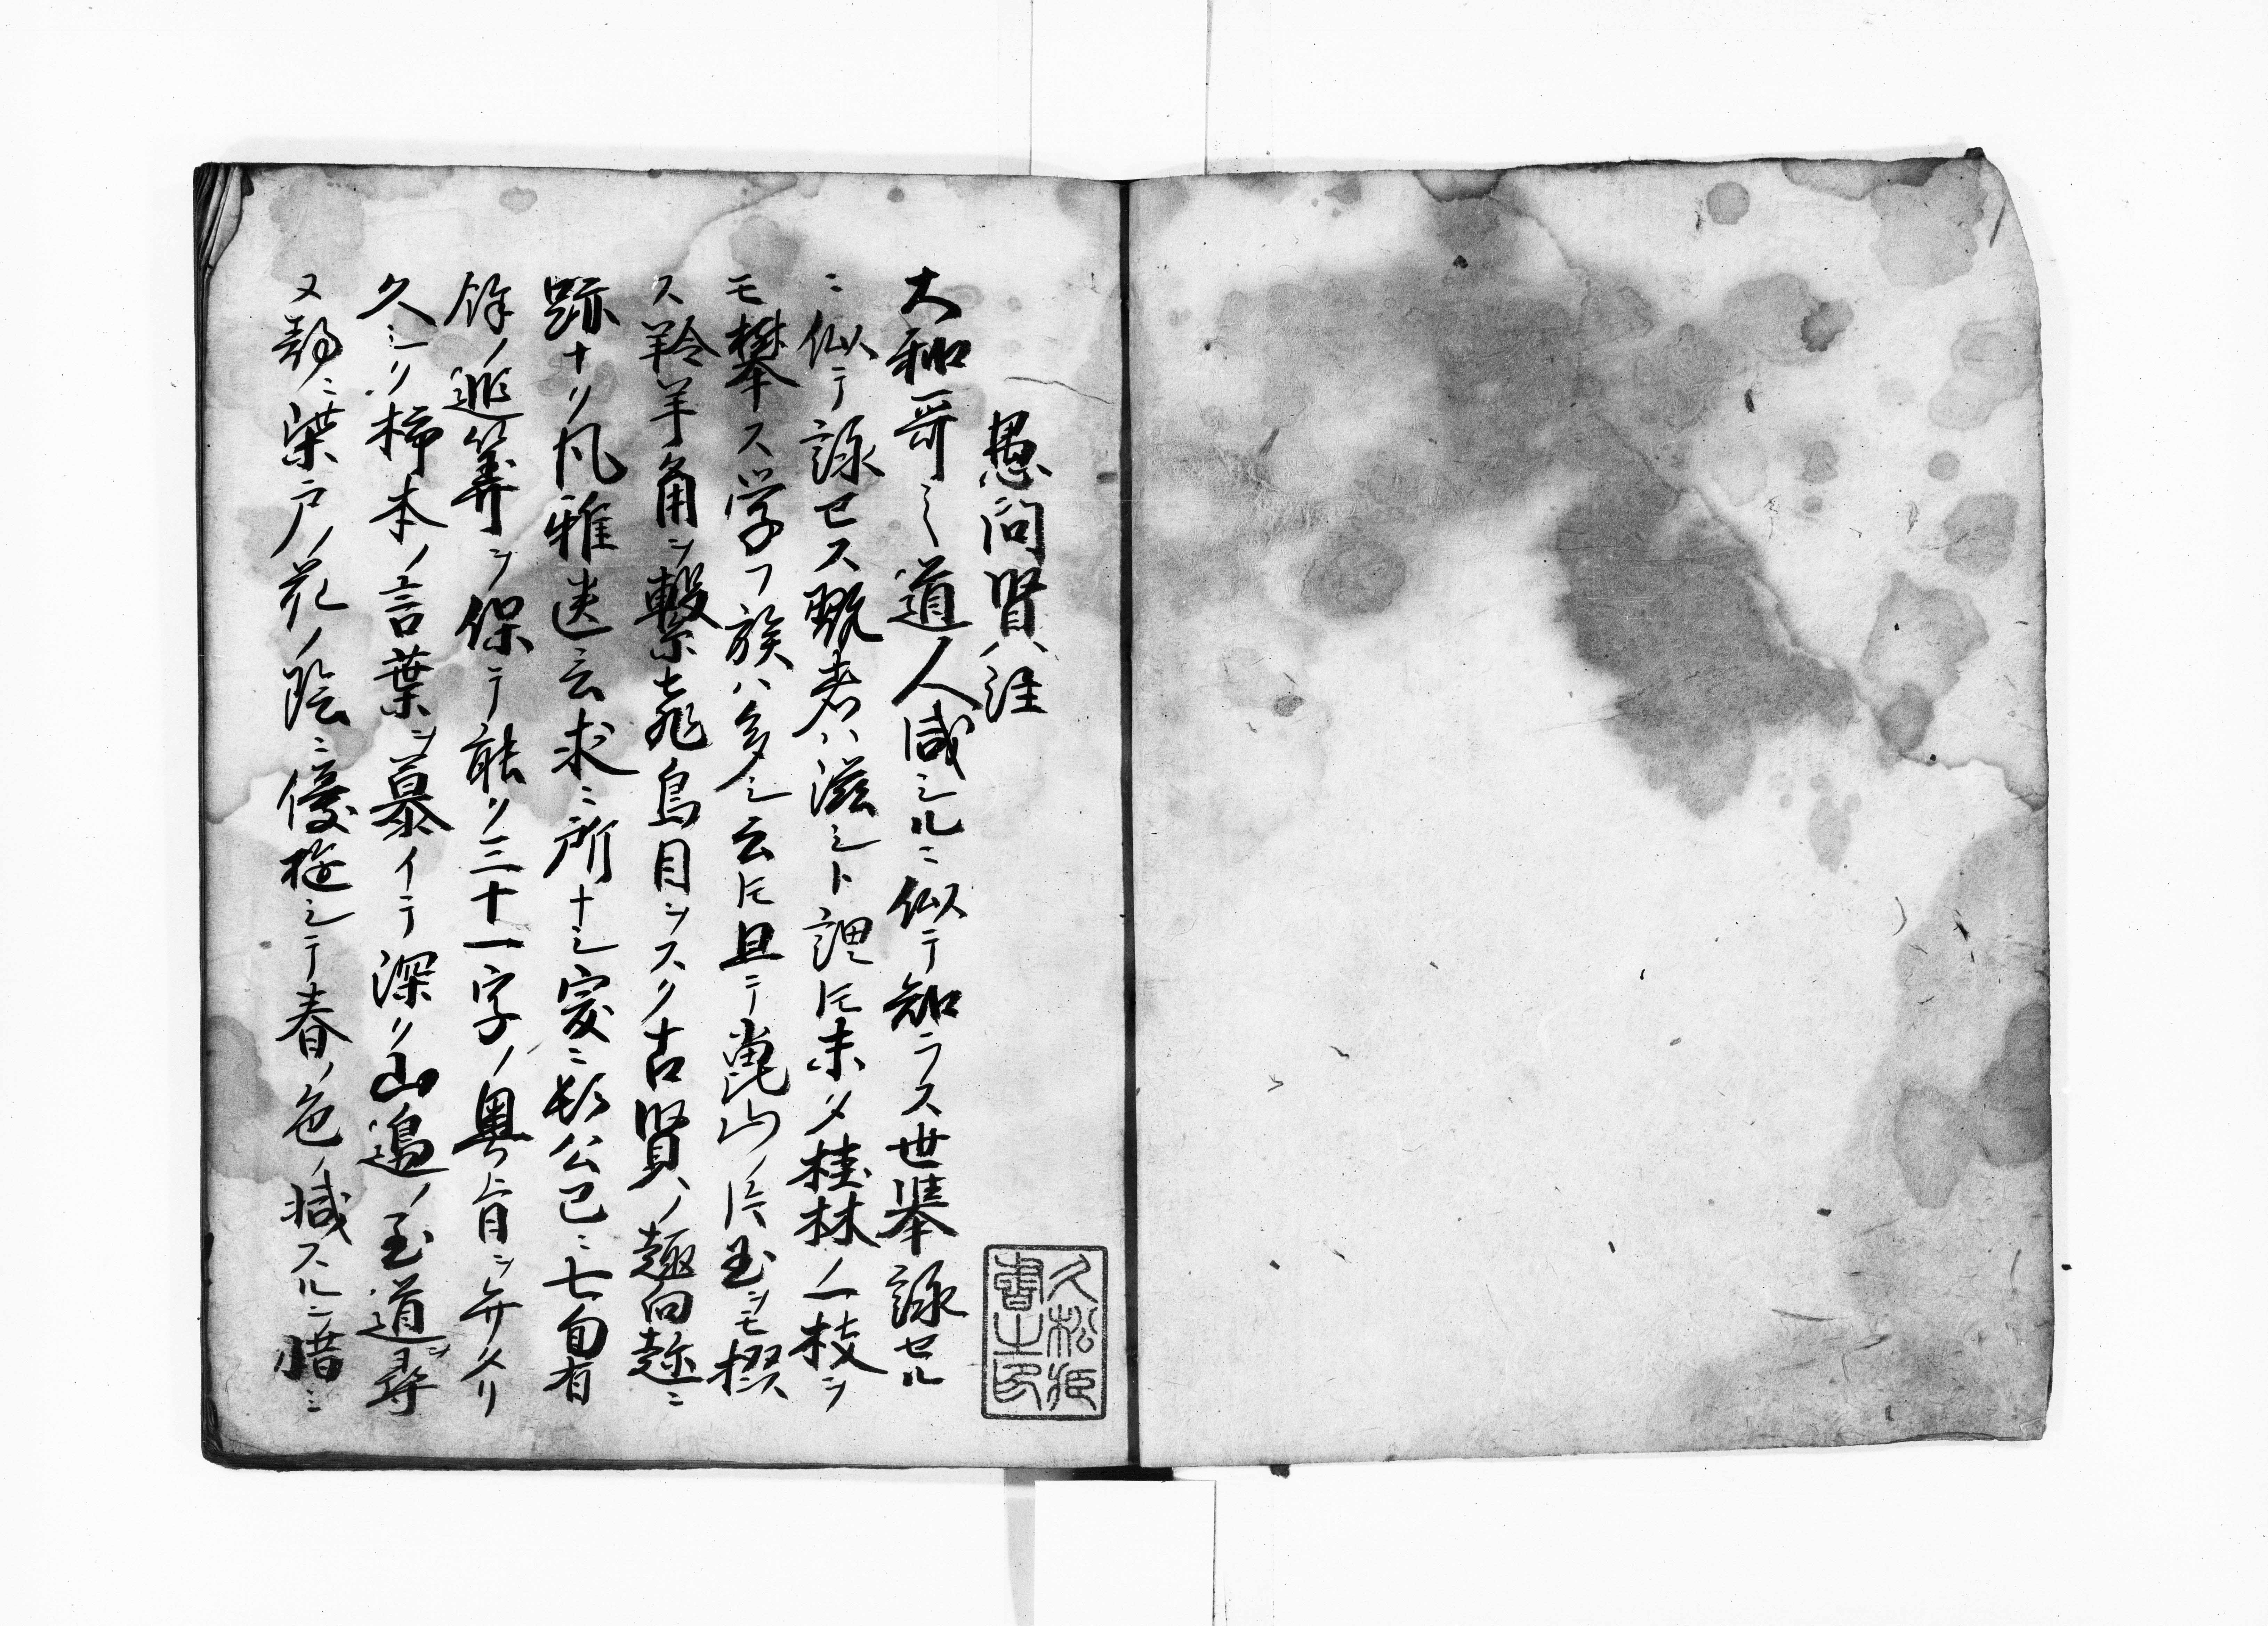 愚問賢注
大和哥之道人咸シルニ似テ知ラス世挙詠セル
ニ似テ詠セス翫者ハ滋シト謂𪜈未タ桂林ノ一枝ヲ
モ攀ス学フ族ハ多シ云𪜈且テ崑山ノ片玉ヲモ掇
ス羚羊角ヲ繋ケ飛鳥目ヲスク古賢ノ趣向趂ニ
跡ナリ風雅迷云求ニ所ナシ爰ニ頓公已ニ七旬有
餘ノ遐筭ヲ保テ能ク三十一字ノ奥旨ヲ弁ヘリ
久シク柿本ノ言葉ヲ慕イテ深ク山邉ノ玉道ヲ尋
又静ニ柴戸ノ花ノ陰ニ優遊シテ春ノ色ノ減スルヲ惜ミ
久松
書之印